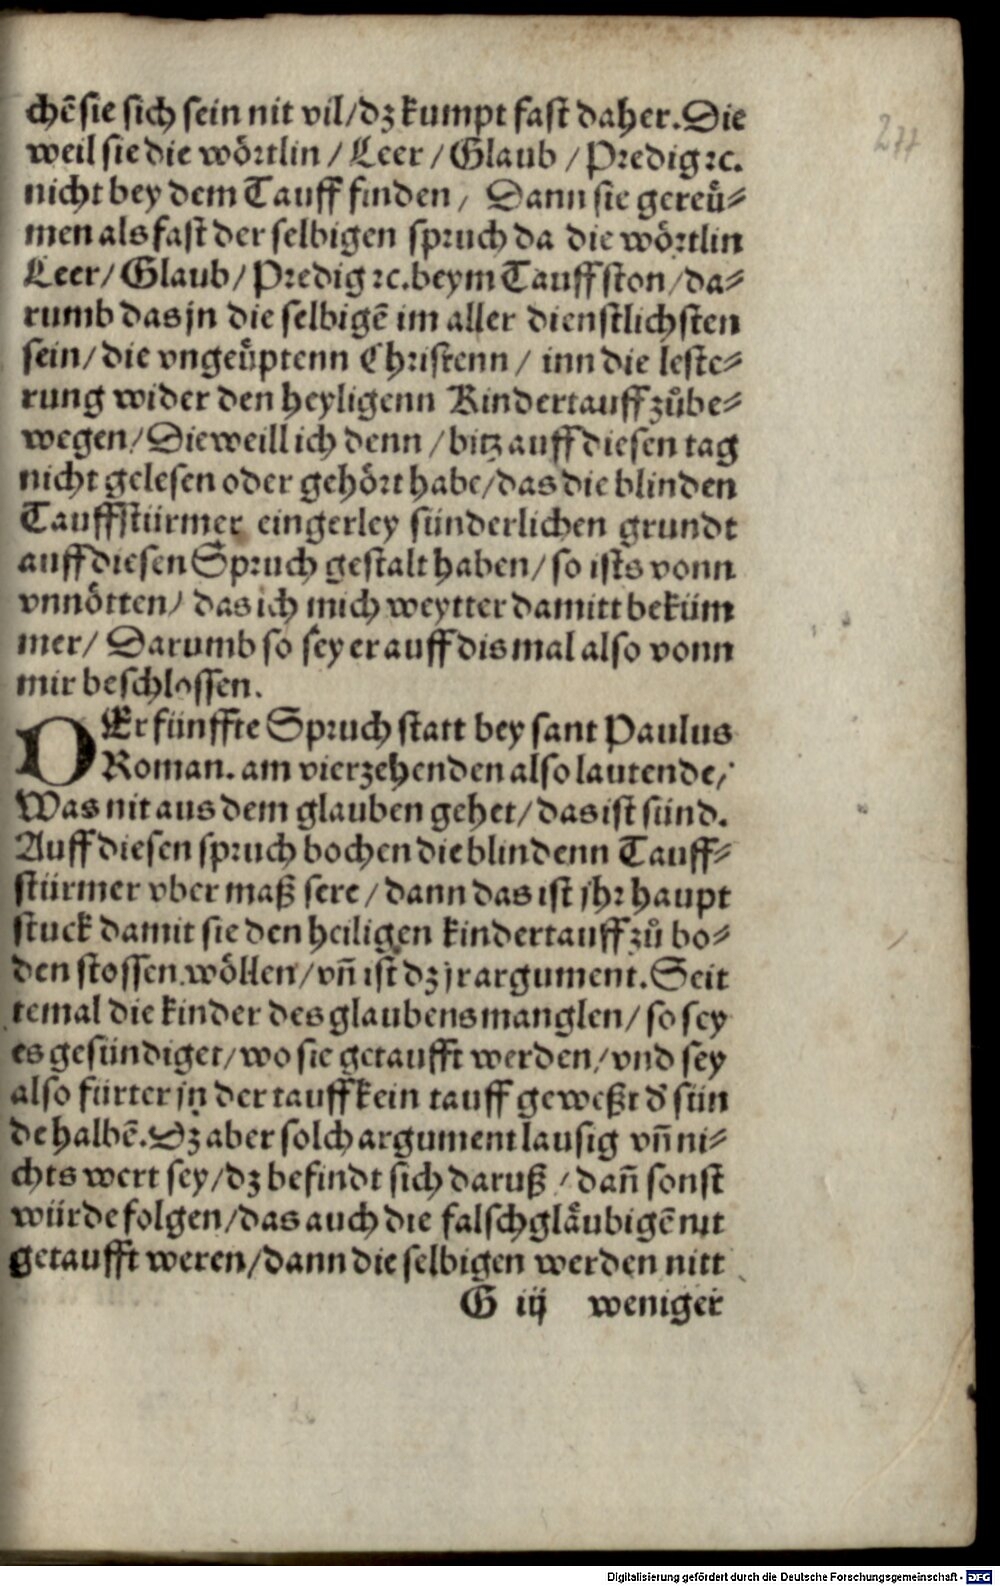 chē sie sich sein nit vil/dz kumpt fast daher. Die
weil sie die wörtlin / Leer / Glaub / Predig ꝛc.
nicht bey dem Tauff finden / Dann sie gereuͤ⸗
men als fast der selbigen spruch da die wörtlin
Leer/ Glaub/ Predig ꝛc. beym Tauff ston/da⸗
rumb das jn die selbigē im aller dienstlichsten
sein/die vngeuͤptenn Christenn / inn die leste⸗
rung wider den heyligenn Kindertauff zuͦbe⸗
wegen/Dieweill ich denn /bitz auff diesen tag
nicht gelesen oder gehört habe/das die blinden
Tauffstürmer eingerley sünderlichen grundt
auff diesen Spruch gestalt haben/ so ists vonn
vnnötten/ das ich mich weytter damitt beküm
mer/ Darumb so sey er auff dis mal also vonn
mir beschlossen.
DEr fünffte Spruch statt bey sant Paulus
Roman. am vierzehenden also lautende/
Was nit aus dem glauben gehet/das ist sünd.
Auff diesen spruch bochen die blindenn Tauff⸗
stürmer vber maß sere /dann das ist jhr haupt
stuck damit sie den heiligen kindertauff zuͦ bo⸗
den stossen wöllen/vn̄ ist dz jr argument. Seit
temal die kinder des glaubens manglen/ so sey
es gesündiget/wo sie getaufft werden/vnd sey
also fürter jn der tauff kein tauff geweßt d' sün
de halbē. Dz aber solch argument lausig vn̄ ni⸗
chts wert sey/dz befindt sich daruß / dan̄ sonst
würde folgen/das auch die falschglaͤubigē nit
getaufft weren/dann die selbigen werden nitt
G iij weniger
277
Digitalisierung gefördert durch die Deutsche Forschungsgemeinschaft - DFG